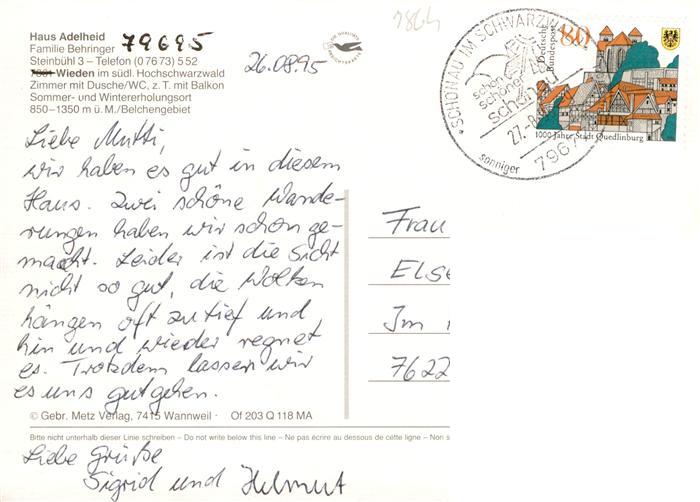 Haus Adelheid
Familie Behringer 79695
Steinbühl 3 – Telefon (0 76 73) 5 52
7861 Wieden im südl. Hochschwarzwald
Zimmer mit Dusche/WC, z. T. mit Balkon
Sommer- und Wintererholungsort
850–1350 m ü. M./Belchengebiet
26.08.95
Liebe Mutti,
wir haben es gut in diesem
Haus. Zwei schöne Wande-
rungen haben wir schon ge-
macht. Leider ist die Sicht
nicht so gut, die Wolken
hängen oft zu tief und
hin und wieder regnet
es. Trotzdem lassen wir
es uns gutgehen.
© Gebr. Metz Verlag, 7415 Wannweil · Of 203 Q 118 MA
Bitte nicht unterhalb dieser Linie schreiben – Do not write below this line – Ne pas écrire au dessous de cette ligne – Non s
Liebe Grüße
Sigrid und Helmut
SCHÖNAU IM SCHWARZWA
schön
schöner
schönau
27.-8.
sonniger
7967
Deutsche
Bundespost
80
1000 Jahre Stadt Quedlinburg
Frau
Else
Im
7622